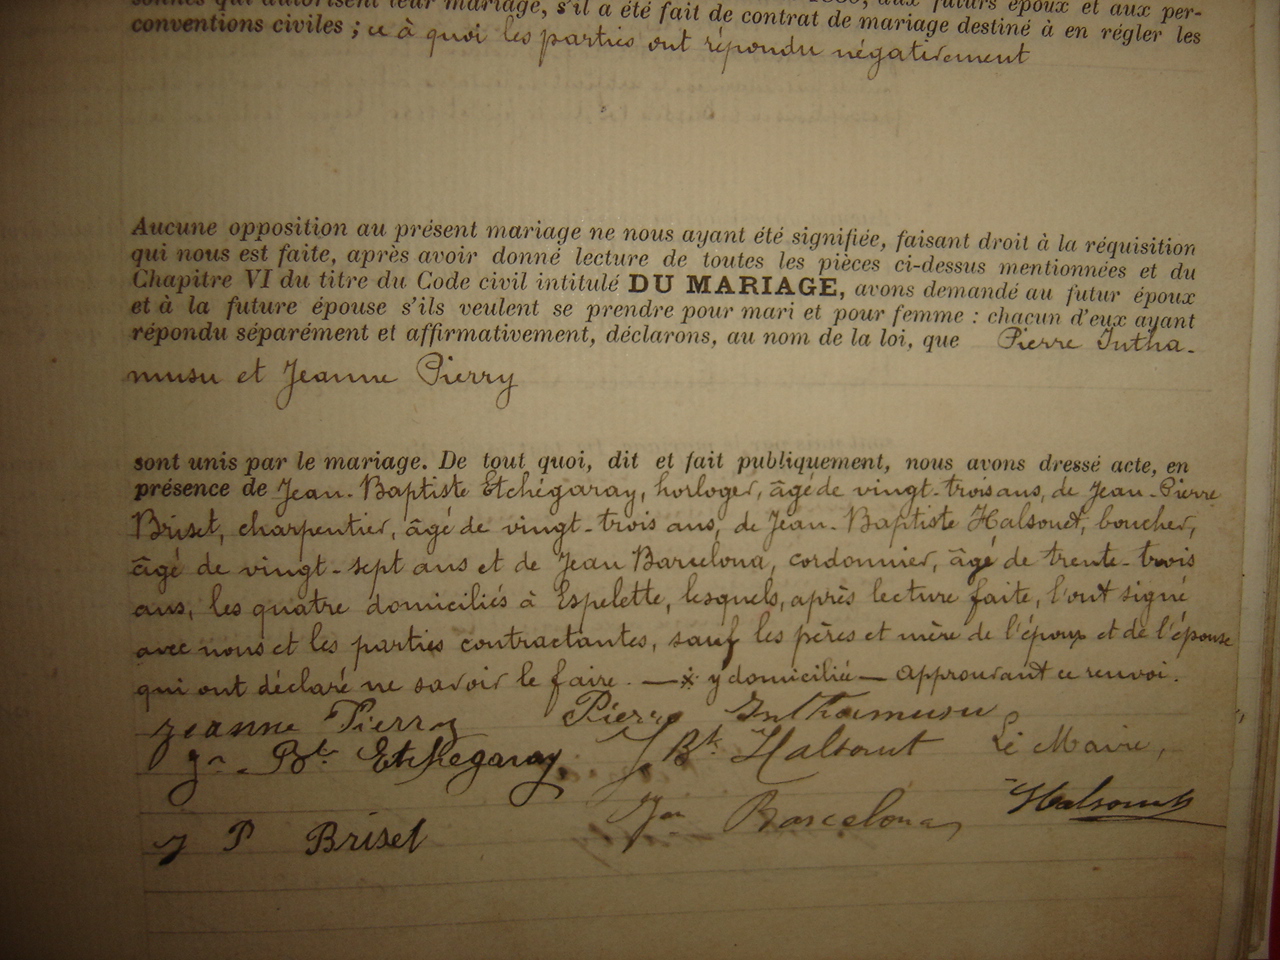 sonnes qui autorisent leur mariage, s'il a été fait de contrat de mariage destiné à en régler les
conventions civiles ; ce à quoi les parties ont répondu négativement
Aucune opposition au présent mariage ne nous ayant été signifiée, faisant droit à la réquisition
qui nous est faite, après avoir donné lecture de toutes les pièces ci-dessus mentionnées et du
Chapitre VI du titre du Code civil intitulé DU MARIAGE, avons demandé au futur époux
et à la future épouse s'ils veulent se prendre pour mari et pour femme : chacun d'eux ayant
répondu séparément et affirmativement, déclarons, au nom de la loi, que Pierre Intha-
musu et Jeanne Pierry
sont unis par le mariage. De tout quoi, dit et fait publiquement, nous avons dressé acte, en
présence de Jean-Baptiste Etchégaray, horloger, âgé de vingt-trois ans, de Jean-Pierre
Briset, charpentier, âgé de vingt-trois ans, de Jean-Baptiste Halsouet, boucher,
âgé de vingt-sept ans et de Jean Barcelona, cordonnier, âgé de trente-trois
ans, les quatre domiciliés à Espelette, lesquels, après lecture faite, l'ont signé
avec nous et les parties contractantes, sauf les pères et mère de l'époux et de l'épouse
qui ont déclaré ne savoir le faire. — * y domiciliée — approuvant ce renvoi.
Jeanne Pierry Pierre Inthamusu
Jn Bte Etchegaray J Bte Halsouet Le Maire,
Jn Barcelona Halsouet
J P Briset